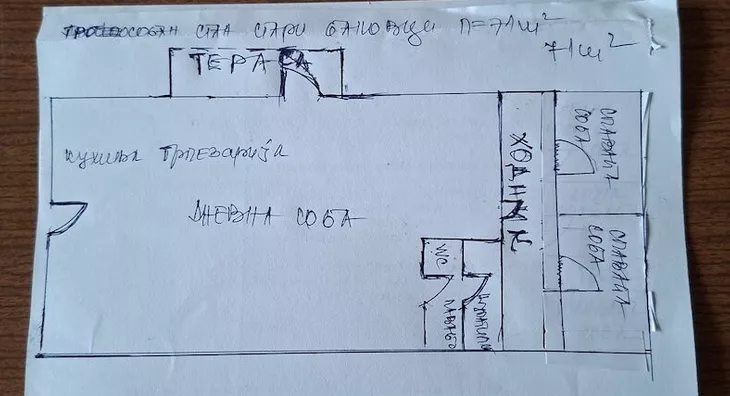 трособан стан стари бановци П=71m²
71m²
ТЕРАСА
кухиња трпезарија
ДНЕВНА СОБА
ХОДНИК
СПАВАЋА
СОБА
СПАВАЋА
СОБА
WC
ЛАВАБО
КУПАТИЛО